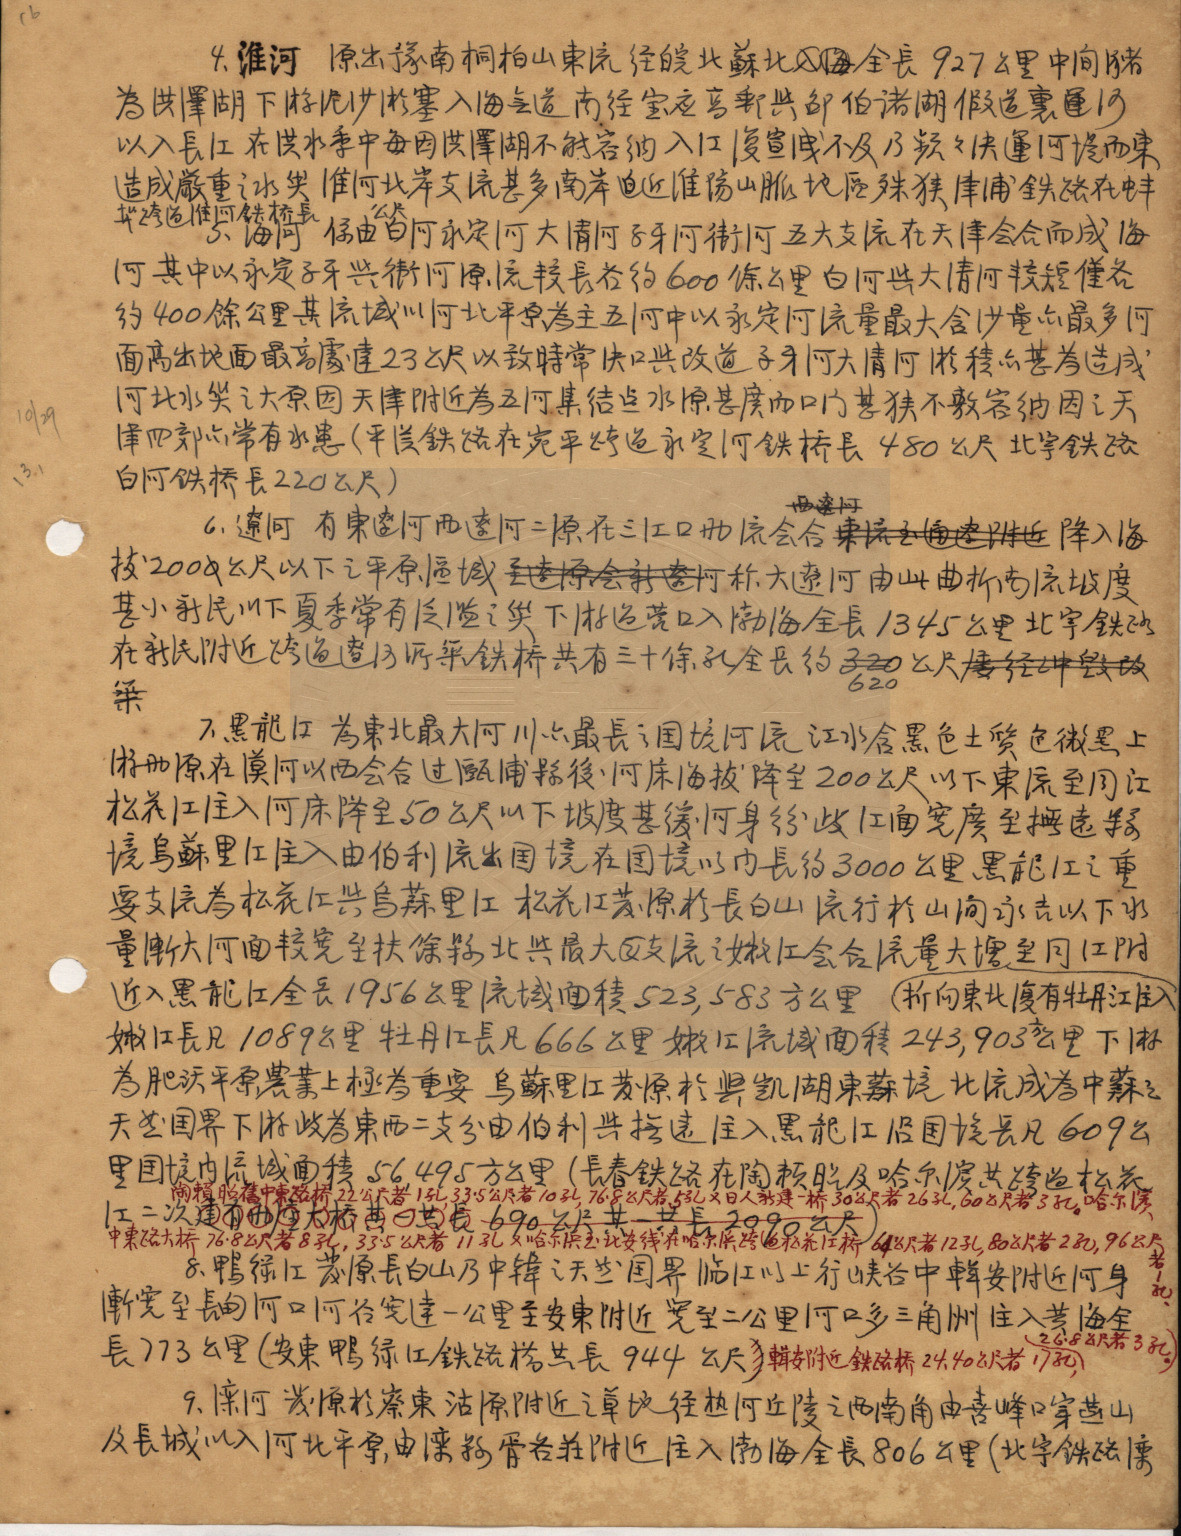 4. 淮河 原出豫南桐柏山東流經皖北蘇北入海全長 927 公里中间潴
為洪澤湖下游泥沙淤塞入海無道南径宝应高郵与邵伯诸湖假道裏運河
以入長江在洪水季中每因洪澤湖不能容纳入江復宣洩不及乃频々决運河堤而東
造成嚴重之水災 淮河北岸支流甚多南岸迫近淮陽山脈地區殊狹 津浦鉄路在蚌
埠跨過淮河鉄橋長 公尺
5. 海河 係由白河永定河大清河子牙河衛河五大支流在天津会合而成海
河其中以永定子牙与衛河原流較長各約600餘公里白河与大清河較短僅各
約400餘公里其流域以河北平原為主五河中以永定河流量最大含沙量亦最多河
面高出地面最高處達23公尺以致時常决口与改道子牙河大清河淤積亦甚為造成
河北水災之大原因天津附近為五河集结点水源甚廣而口门甚狹不敷容纳因之天
津四郊亦常有水患(平漢鉄路在宛平跨過永定河鉄橋長 480公尺 北宁鉄路
白河鉄橋長220公尺)
西遼河
6. 遼河 有東遼河西遼河二原在三江口两流会合東流至通遼附近降入海
拔200公尺以下之平原區域至遼原会新遼河称大遼河由此曲折南流坡度
甚小新民以下夏季常有泛滥之災下游過营口入渤海全長1345公里北宁鉄路
在新民附近跨過遼河所築鉄桥共有三十餘孔全長約320公尺屢经冲毁改
620
築
7. 黑龍江 為東北最大河川亦最長之国境河流 江水含黑色土質色微黑上
游两原在漠河以西会合过甌浦縣後河床海拔降至200公尺以下東流至同江
松花江注入河床降至50公尺以下坡度甚緩河身分歧江面宽廣至撫遠縣
境烏蘇里江注入由伯利流出国境在国境以内長約3000公里黑龍江之重
要支流為松花江与烏蘇里江 松花江發原於長白山流行於山间永吉以下水
量漸大河面較宽至扶餘縣北与最大支流之嫩江会合流量大增至同江附
近入黑龍江全長1956公里流域面積523,583方公里 (折向東北復有牡丹江注入
嫩江長凡1089公里牡丹江長凡666公里 嫩江流域面積243,903方公里下游
為肥沃平原農業上極為重要 烏蘇里江發原於興凱湖東蘇境北流成為中蘇之
天然国界下游歧為東西二支分由伯利与撫遠注入黑龍江沿国境長凡609公
里国境内流域面積56495方公里(長春鉄路在陶賴昭及哈尔濱共跨過松花
陶賴昭舊中東路桥 22公尺者1孔 33.5公尺者10孔, 76.8公尺者5孔 又日人新建一桥 30公尺者26孔,60公尺者3孔。哈尔濱
江二次建有两座大桥其一共長 690公尺其一共長2090公尺)
中東路大桥 76.8公尺者8孔, 33.5公尺者 11孔 又哈尔濱至北安线在哈尔濱跨過松花江桥 64公尺者12孔,80公尺者2孔,96公尺
者1孔。
8. 鴨绿江 發原長白山乃中韓之天然国界 临江以上行峡谷中輯安附近河身
漸宽至長甸河口河谷宽達一公里至安東附近宽至二公里河口多三角洲注入黄海全
長773公里(安東鴨绿江鉄路桥共長 944 公尺)輯安附近鉄路桥 24.40公尺者 17孔)
26.8公尺者3孔。)
9. 滦河 發原於察東沽原附近之草地径热河丘陵之西南角由喜峰口穿燕山
及長城以入河北平原,由滦縣骨各莊附近注入渤海全長806公里(北宁鉄路滦